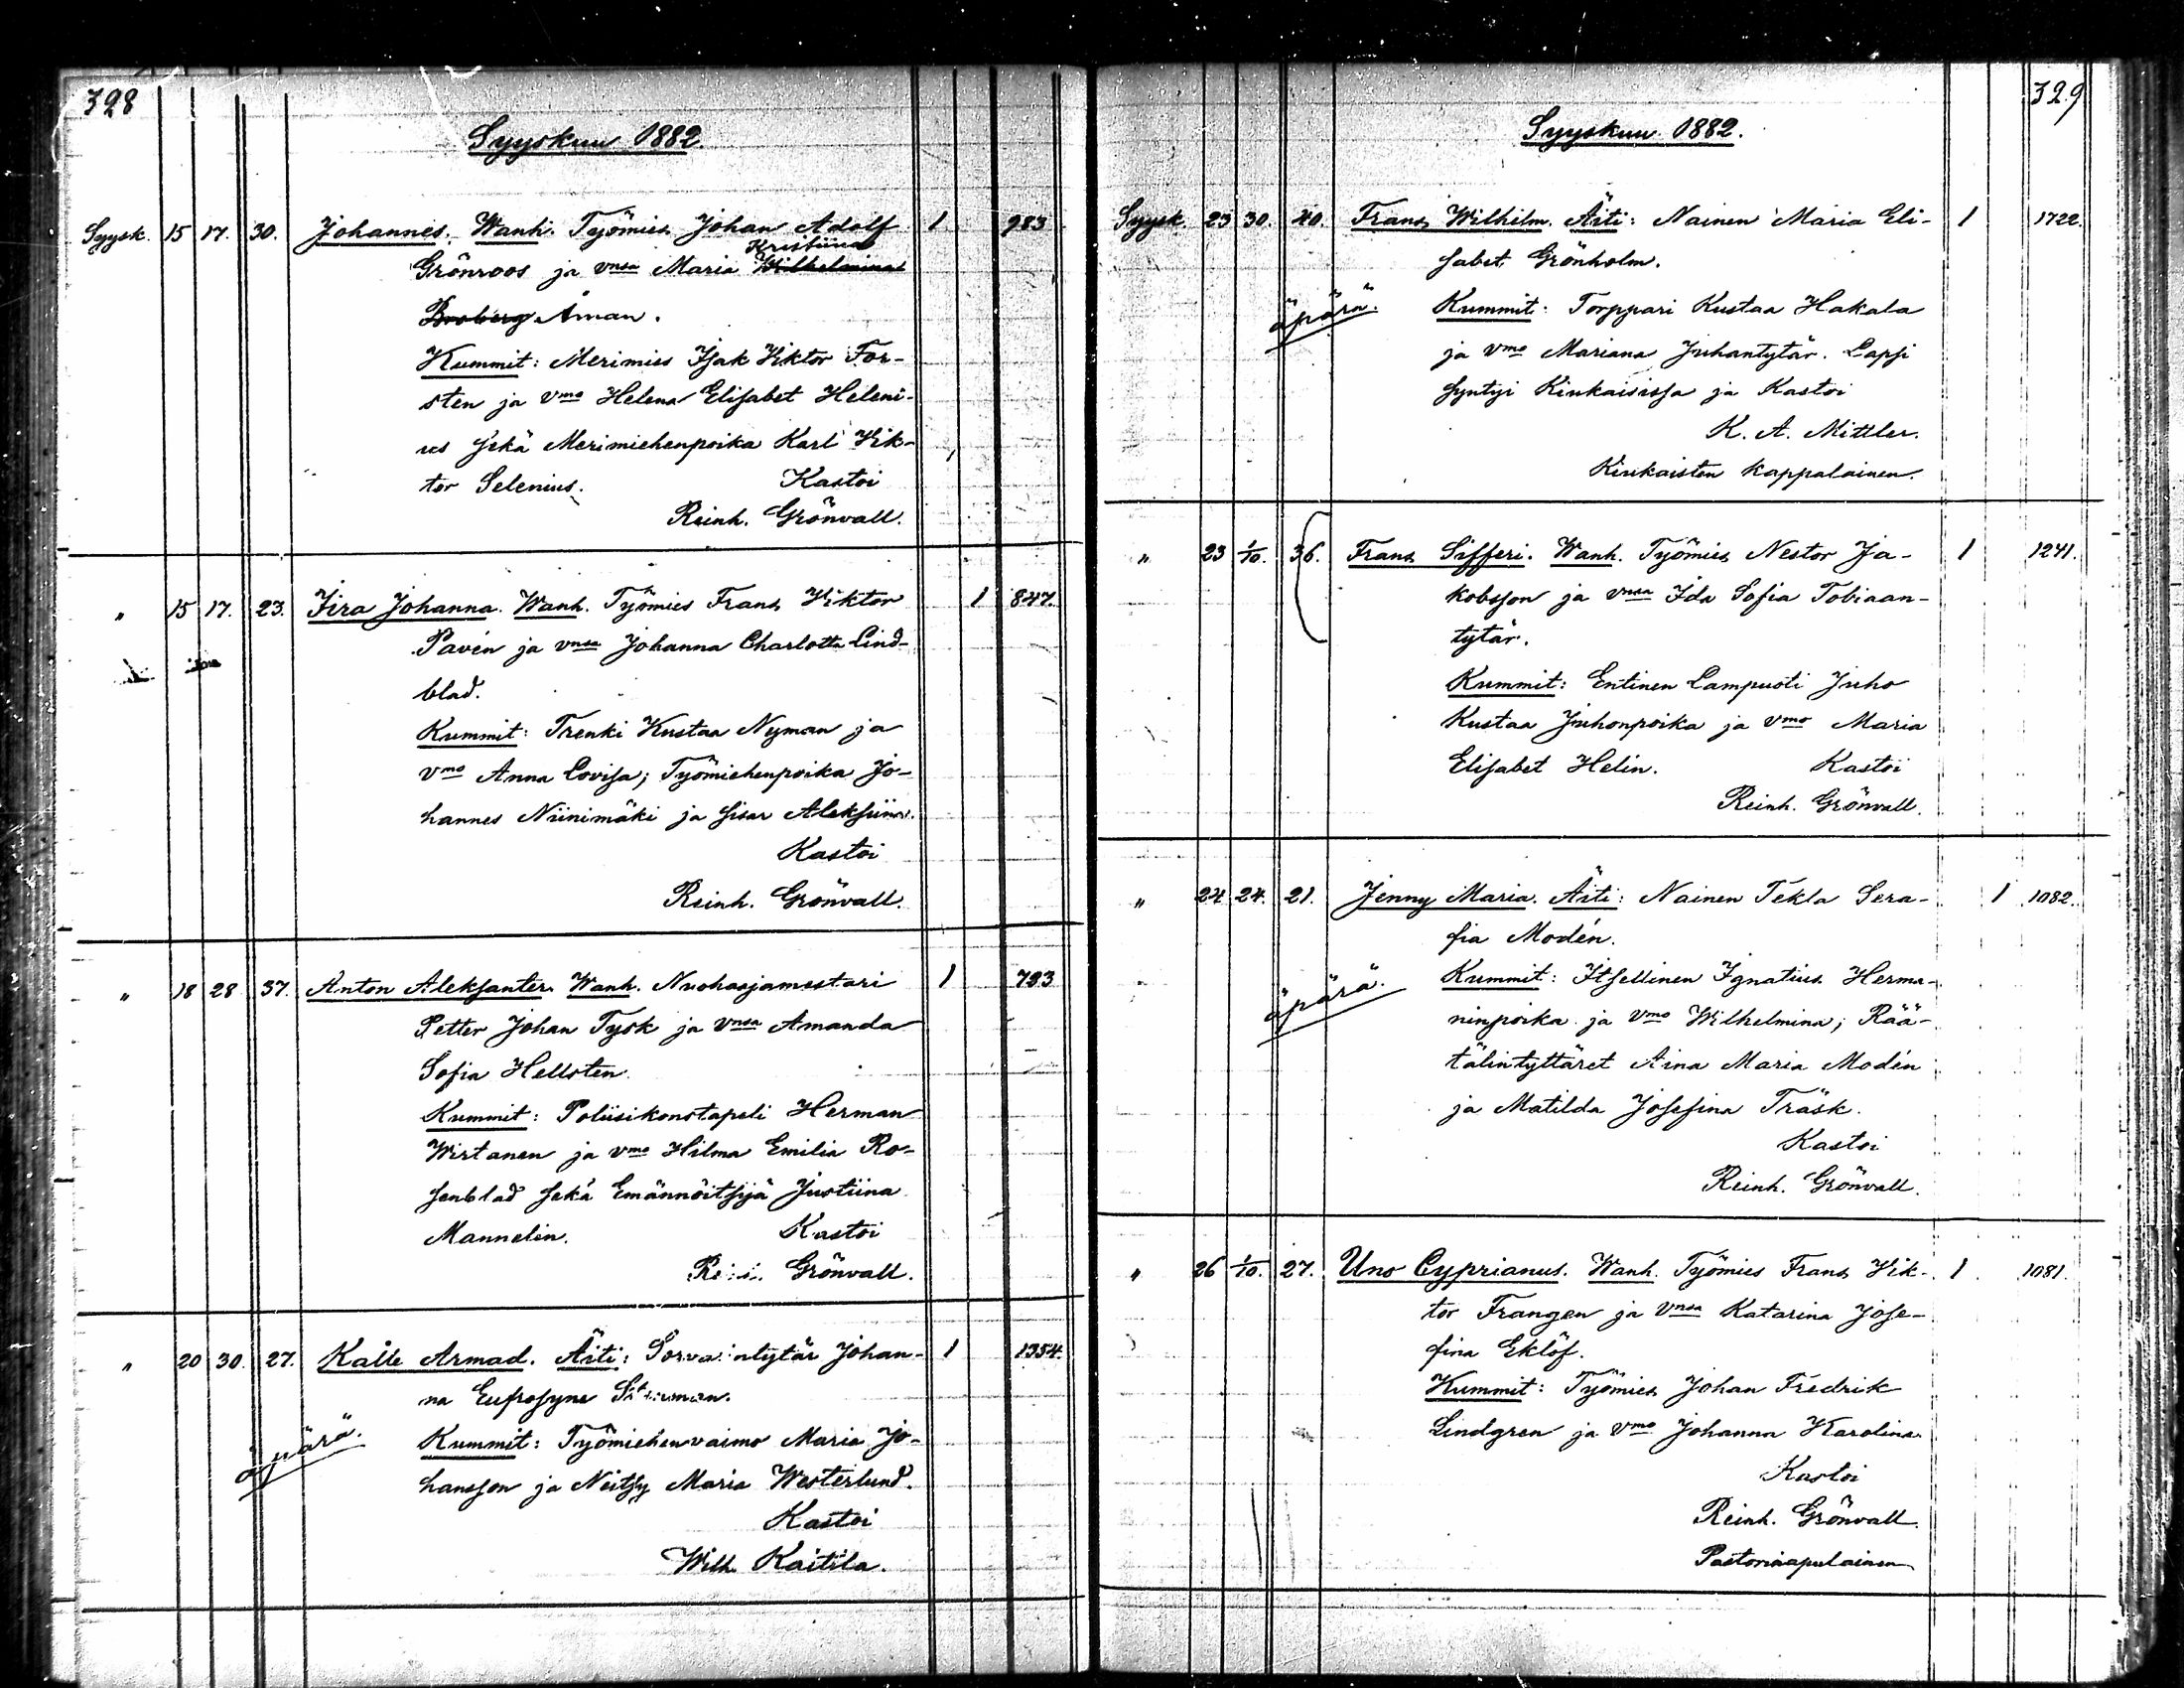 328
Syyskuu 1882.
Syysk. 15 17. 30. Johannes. Wanh. Työmies Johan Adolf 1 983
Kristiina
Grönroos ja vnsa Maria Wilhelmina
Broberg Åman.
Kummit: Merimies Isak Viktor For-
sten ja vmo Helena Elisabet Heleni-
us sekä Merimiehenpoika Karl Vik-
tor Selenius. Kastoi
Reinh. Grönvall.
" 15 17. 23. Iira Johanna. Wanh. Työmies Frans Viktor 1 847.
Pavén ja vnsa Johanna Charlotta Lind-
blad.
Kummit: Trenki Kustaa Nyman ja
vmo Anna Lovisa; Työmiehenpoika Jo-
hannes Niinimäki ja sisar Aleksiina.
Kastoi
Reinh. Grönvall.
" 18 28 37. Anton Aleksanter. Wanh. Nuohoojamestari 1 793
Petter Johan Tysk ja vnsa Amanda
Sofia Hellsten.
Kummit: Poliisikonstapeli Herman
Wirtanen ja vmo Hilma Emilia Ro-
senblad sekä Emännöitsijä Justiina
Mannelin. Kastoi
Grönvall.
" 20 30. 27. Kalle Armad. Äiti: Johan- 1 1354.
na Eufrosyne
äpärä. Kummit: Työmiehenvaimo Maria Jo-
hansson ja Neitsy Maria Westerlund.
Kastoi
Wilh. Kaitila.
329
Syyskuu 1882.
Syysk. 23 30. 40. Frans Wilhelm. Äiti: Nainen Maria Eli- 1 1722.
sabet Grönholm.
äpärä. Kummit: Torppari Kustaa Hakala
ja vmo Mariana Juhantytär. Lapsi
syntyi Kiukaisissa ja Kastoi
K. A. Mittler.
Kiukaisten kappalainen.
" 23 1/10. 36. Frans Sifferi. Wanh. Työmies Nestor Ja- 1 1241.
kobsson ja vnsa Ida Sofia Tobiaan-
tytär.
Kummit: Entinen Lampuoti Juho
Kustaa Juhonpoika ja vmo Maria
Elisabet Helin. Kastoi
Reinh. Grönvall.
" 24 24. 21. Jenny Maria. Äiti: Nainen Tekla Sera- 1 1082.
fia Modén.
äpärä. Kummit: Itsellinen Ignatius Herma-
ninpoika ja vmo Wilhelmina; Rää-
tälintyttäret Aina Maria Modén
ja Matilda Josefina Träsk.
Kastoi
Reinh. Grönvall.
" 26 1/10. 27. Uno Cyprianus. Wanh. Työmies Frans Vik- 1 1081.
tor Frangen ja vnsa Katarina Jose-
fina Eklöf.
Kummit: Työmies Johan Fredrik
Lindgren ja vmo Johanna Karolina
Kastoi
Reinh. Grönvall.
Pastorinapulainen